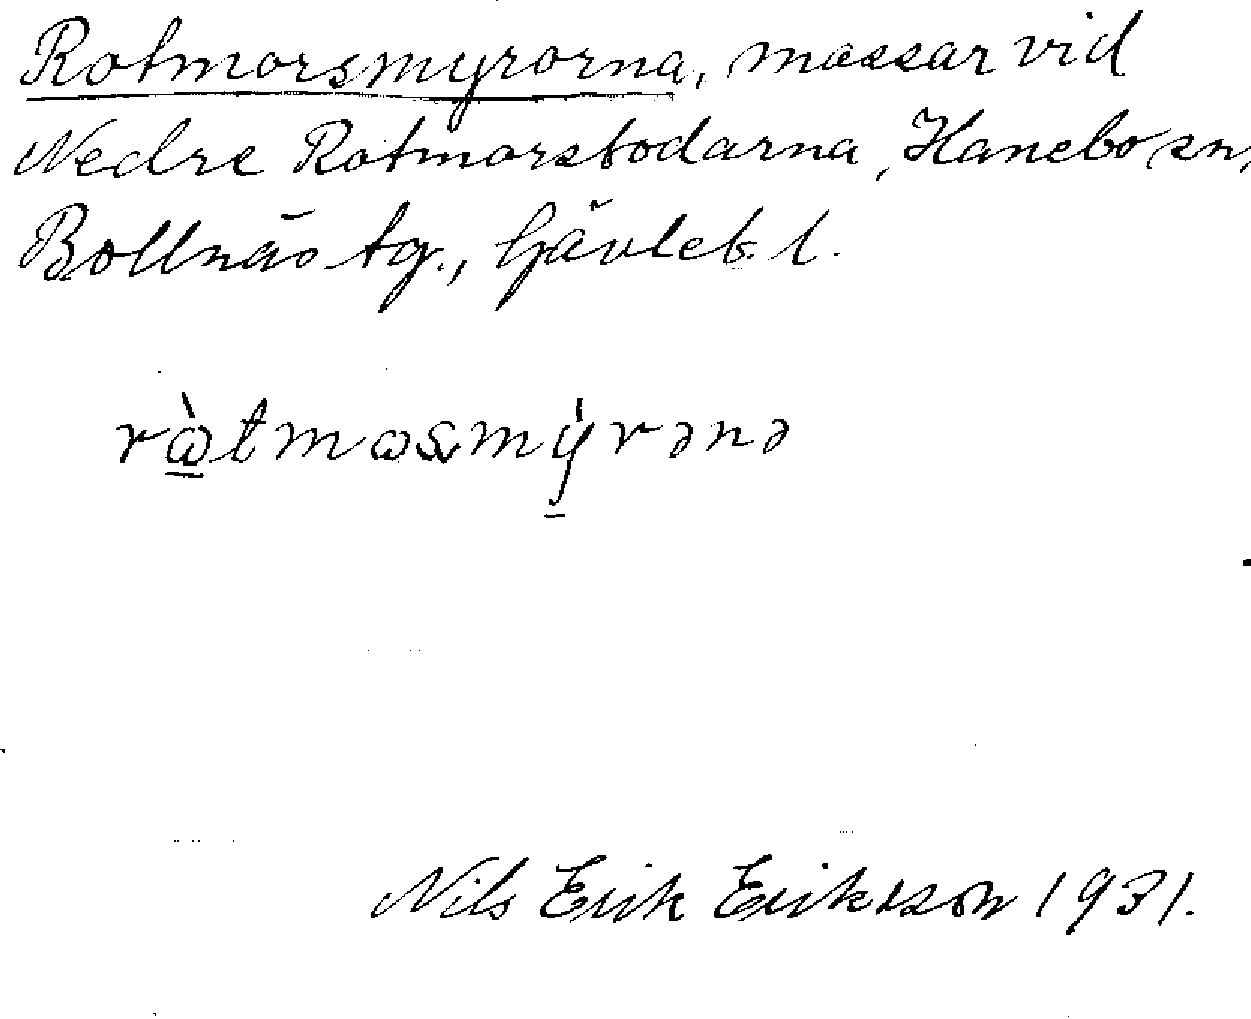 Rotmorsmyrorna, mossar vid
Nedre Rotmorsbodarna, Hanebo sn,
Bollnäs tg., Gävleb. l.
rὼ̲tmωsmý̲rənə
Nils Erik Eriksson 1931.